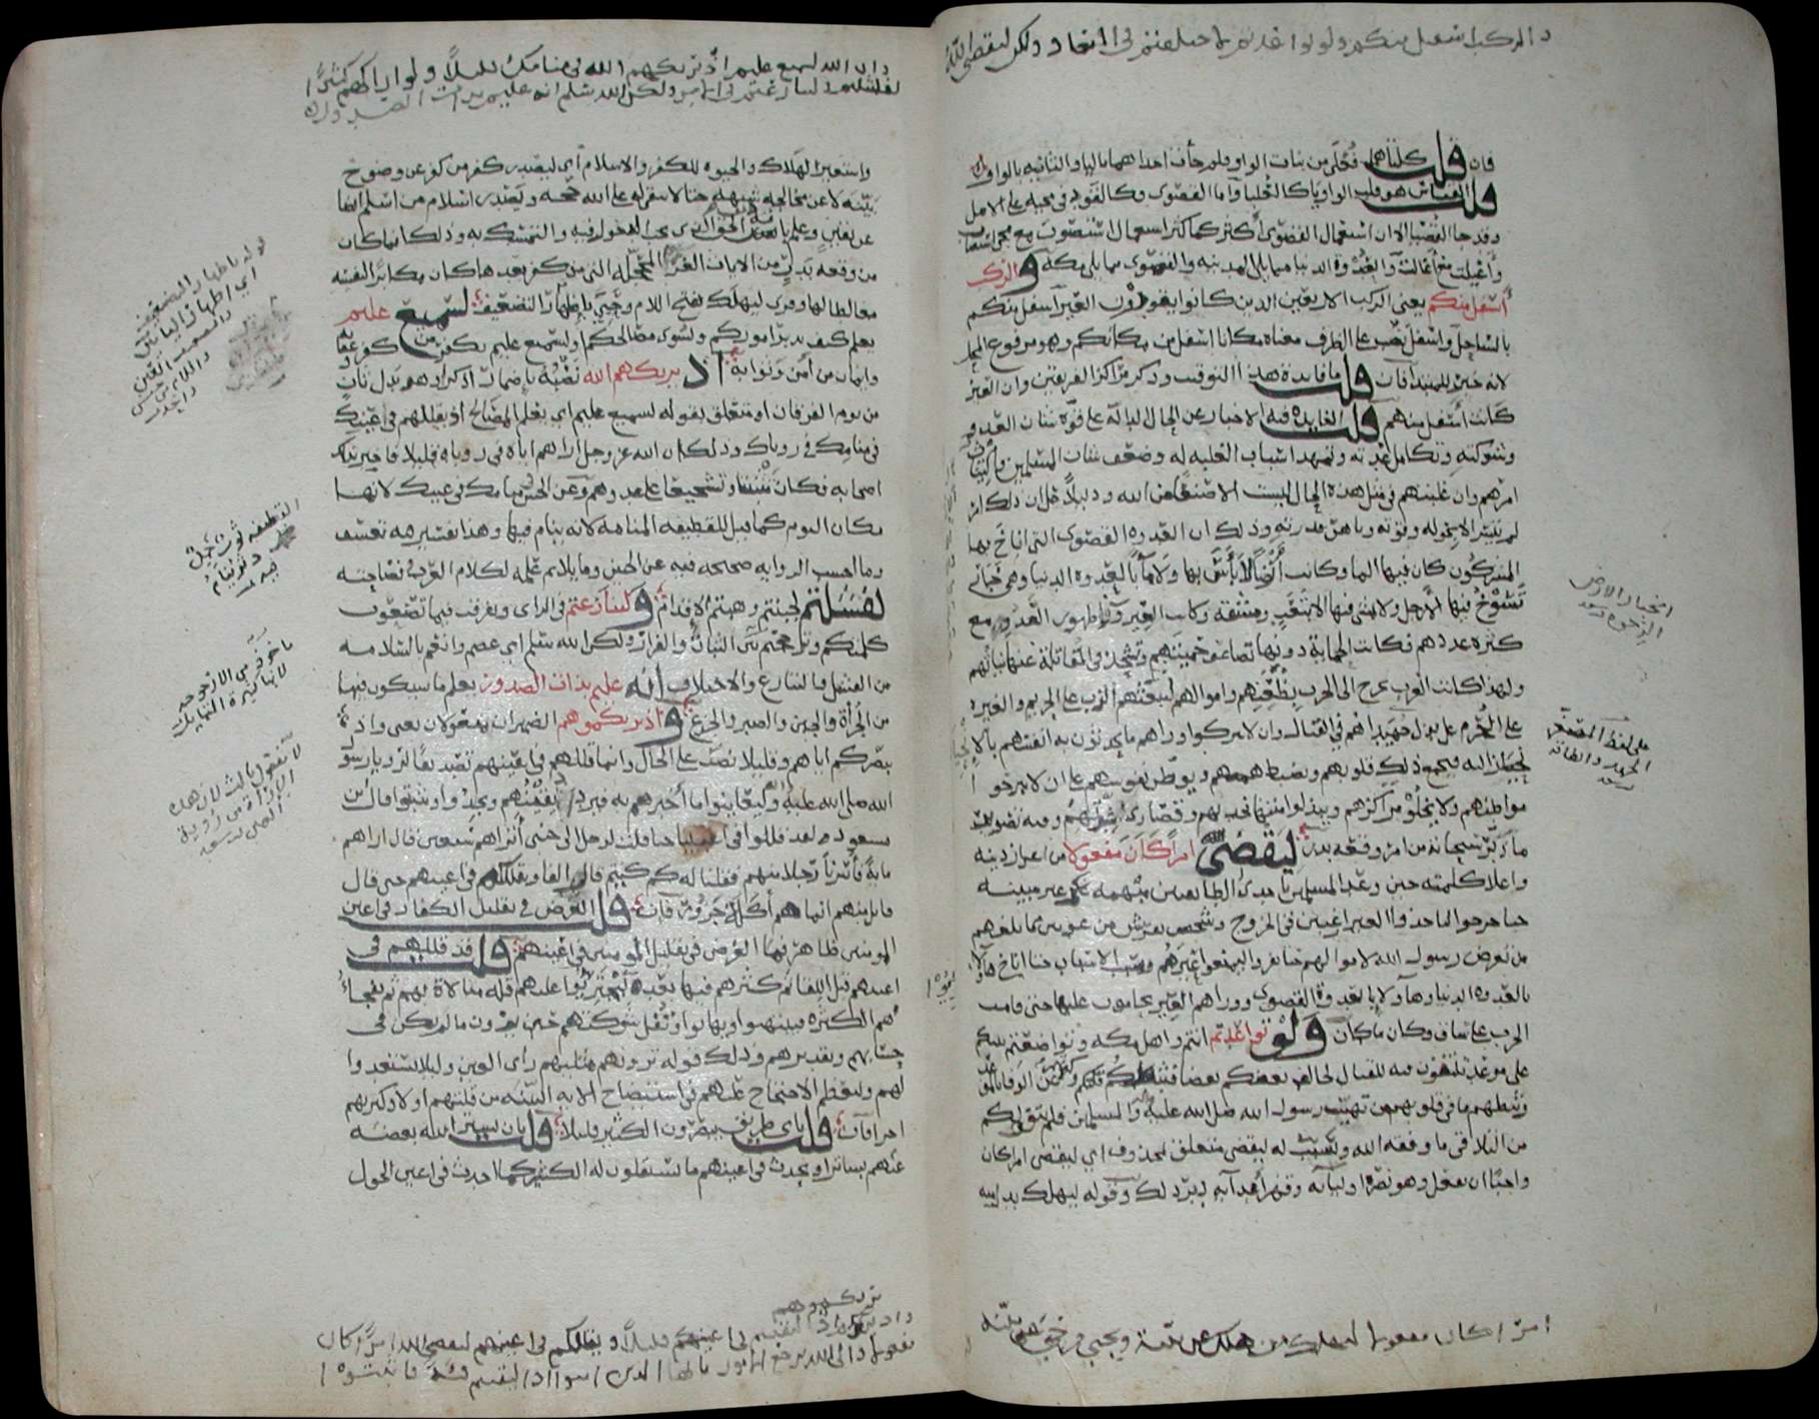 والركب اسفل منكم ولو تواعدتم لاختلفتم في الميعاد ولكن ليقضي الله
فان قلت كلتاهما فعلى من بنات الواو فلم جاءت احداهما بالياء والثانية بالواو
قلت القياس هو قلب الواو ياء كالعليا واما القصوى فكالقود في مجيئه على الاصل
وقد جاء القصيا الا ان استعمال القصوى اكثر كما كثر استعمال استصوب مع مجي استصاب
واغيلت مع اغالت والعدوة الدنيا مما يلي المدينة والقصوى مما يلي مكة والركب
اسفل منكم يعني الركب الاربعين الذين كانوا يقودون العير اسفل منكم
بالساحل واسفل نصب على الظرف معناه مكانا اسفل من مكانكم وهو مرفوع المحل
لانه خبر للمبتدا فان قلت ما فائدة هذا التوقيت وذكر مراكز الفريقين وان العير
كانت اسفل منهم قلت الفائدة فيه الاخبار عن الحال الدالة على قوة شان العدو
وشوكته وتكامل عدته وتمهد اسباب الغلبة له وضعف شان المسلمين والتياث
امرهم وان غلبتهم في مثل هذه الحال ليست الا صنعا من الله ودليلا على ان ذلك امر
لم يتيسر الا بحوله وقوته وباهر قدرته وذلك ان العدوة القصوى التي اناخ بها
المشركون كان فيها الما وكانت ارضا لا باس بها ولا ما بالعدوة الدنيا وهي خبار
تسوخ فيها الارجل ولا يمشى فيها الا بتعب ومشقة وكانت العير وراء ظهور العدو مع
كثرة عددهم فكانت الحماية دونها تضاعف حميتهم وتشحذ في المقاتلة عنها نياتهم
ولهذا كانت العرب تخرج الى الحرب بظعنهم واموالهم ليبعثهم الذب على الحريم والغيرة
على الحرم على بذل جهيداهم في القتال وان لا يتركوا وراهم ما يحدثون به انفسهم بالانحياز
اليه فيجمع ذلك قلوبهم ويضبط هممهم ويوطن نفوسهم على ان لا يبرحوا
مواطنهم ولا يخلوا مراكزهم ويبذلوا منتهى نجدتهم وقصارى شدتهم وفيه تصوير
ما دبر سبحانه من امر وقعة بدر ليقضي الله امرا كان مفعولا من اعزاز دينه
واعلا كلمته حين وعد المسلمين باحدى الطائفتين مبهمة غير مبينة
حتى خرجوا لياخذوا العير راغبين في الخروج وشخص بقريش مرعوبين مما بلغهم
من تعرض رسول الله لاموالهم حتى نفروا ليمنعوا عيرهم وسبب الاسباب حتى اناخ هاولا
بالعدوة الدنيا وهاولا بالعدوة القصوى ووراهم العير يحامون عليها حتى قامت
الحرب على ساق وكان ما كان ولو تواعدتم انتم واهل مكة وتواضعتم بينكم
على موعد تلتقون فيه للقتال لخالف بعضكم بعضا فثبطكم قلتكم وكثرتهم عن الوفا بالموعد
وثبطهم ما في قلوبهم من تهيب رسول الله صلى الله عليه والمسلمين فلم يتفق لكم
من التلاقي ما وفقه الله وسبب له ليقضي متعلق بمحذوف اي ليقضي امرا كان
واجبا ان يفعل وهو نصر اوليائه وقهر اعدائه دبر ذلك وقوله ليهلك بدل منه
امرا كان مفعولا ليهلك من هلك عن بينة ويحيى من حي عن بينة
انخبار الارض
الرخوة
على لفظ المصغر
الجهد والطاقة
وان الله لسميع عليم اذ يريكهم الله في منامك قليلا ولو اراكهم كثيرا
لفشلتم ولتنازعتم في الامر ولكن الله سلم انه عليم بذات الصدور
واستعير الهلاك والحيوة للكفر والاسلام اي ليصدر كفر من كفر عن وضوح
بينة لا عن مخالجة شبهة حتى لا يبقى له على الله حجة ويصدر اسلام من اسلم ايضا
عن يقين وعلم بانه دين الحق الذي يجب الدخول فيه والتمسك به وذلك ان ما كان
من وقعة بدر من الايات الغر المحجلة التي من كفر بعدها كان مكابرا لنفسه
مغالطا لها وقرى ليهلك بفتح اللام وحيي باظهار التضعيف لسميع عليم
يعلم كيف يدبر اموركم ويسوي مصالحكم او لسميع عليم بكفر من كفر وعقابه
وايمان من امن وثوابه اذ يريكهم الله نصبه باضمار اذكر او هو بدل ثان
من يوم الفرقان او متعلق بقوله لسميع عليم اي يعلم المصالح اذ يقللهم في عينك
في منامك في روياك وذلك ان الله عز وجل اراهم اياه في روياه قليلا فاخبر بذلك
اصحابه فكان تثبيتا وتشجيعا على عدوهم وعن الحسن في منامك في عينك لانها
مكان النوم كما قيل للقطيفة المنامة لانه ينام فيها وهذا تفسير فيه تعسف
وما احسب الرواية صحيحة فيه عن الحسن وما يلائم علمه بكلام العرب وفصاحته
لفشلتم لجبنتم وهبتم الاقدام ولتنازعتم في الراي وتفرقت فيما تصنعون
كلمتكم وترجحتم بين الثبات والفرار ولكن الله سلم اي عصم وانعم بالسلامة
من الفشل والتنازع والاختلاف انه عليم بذات الصدور يعلم ما سيكون فيها
من الجراة والجبن والصبر والجزع واذ يريكموهم الضميران مفعولان يعني واذ
يبصركم اياهم وقليلا نصب على الحال وانما قللهم في اعينهم تصديقا لرؤيا رسول
الله صلى الله عليه وليعاينوا ما اخبرهم به فيزداد يقينهم ويجدوا ويثبتوا قال ابن
مسعود لقد قللوا في اعيننا حتى قلت لرجل الى جنبي اتراهم سبعين قال اراهم
ماية فاسرنا رجلا منهم فقلنا له كم كنتم قال الفا ويقللكم في اعينهم حتى قال
قائل منهم انما هم اكلة جزور فان قلت الغرض في تقليل الكفار في اعين
المومنين ظاهر فما الغرض في تقليل المومنين في اعينهم قلت قد قللهم في
اعينهم قبل اللقاء ثم كثرهم فيها بعده ليجتريوا عليهم قلة مبالاة بهم ثم تفجاهم
الكثرة فيبهتوا ويهابوا وتفل شوكتهم حين يرون ما لم يكن في
حسابهم وتقديرهم وذلك قوله ترونهم مثليهم راي العين وليلا يستعدوا
لهم وليعظم الاحتجاج عليهم في استيضاح الاية البينة من قلتهم اولا وكثرتهم
اخرا فان قلت باي طريق يبصرون الكثير قليلا قلت بان يستر الله بعضه
عنهم بساتر او يحدث في اعينهم ما يستقلون له الكثير كما احدث في اعين الحول
واذ يريكموهم اذ التقيتم في اعينكم قليلا ويقللكم في اعينهم ليقضي الله امرا كان
مفعولا والى الله ترجع الامور يا ايها الذين امنوا اذا لقيتم فئة فاثبتوا
قوله باظهار التضعيف
اي اظهار اليائين
القطيفة ثوب
ينام
فيه
ماخوذ من الارجوحة
لانها كثيرة التمايل